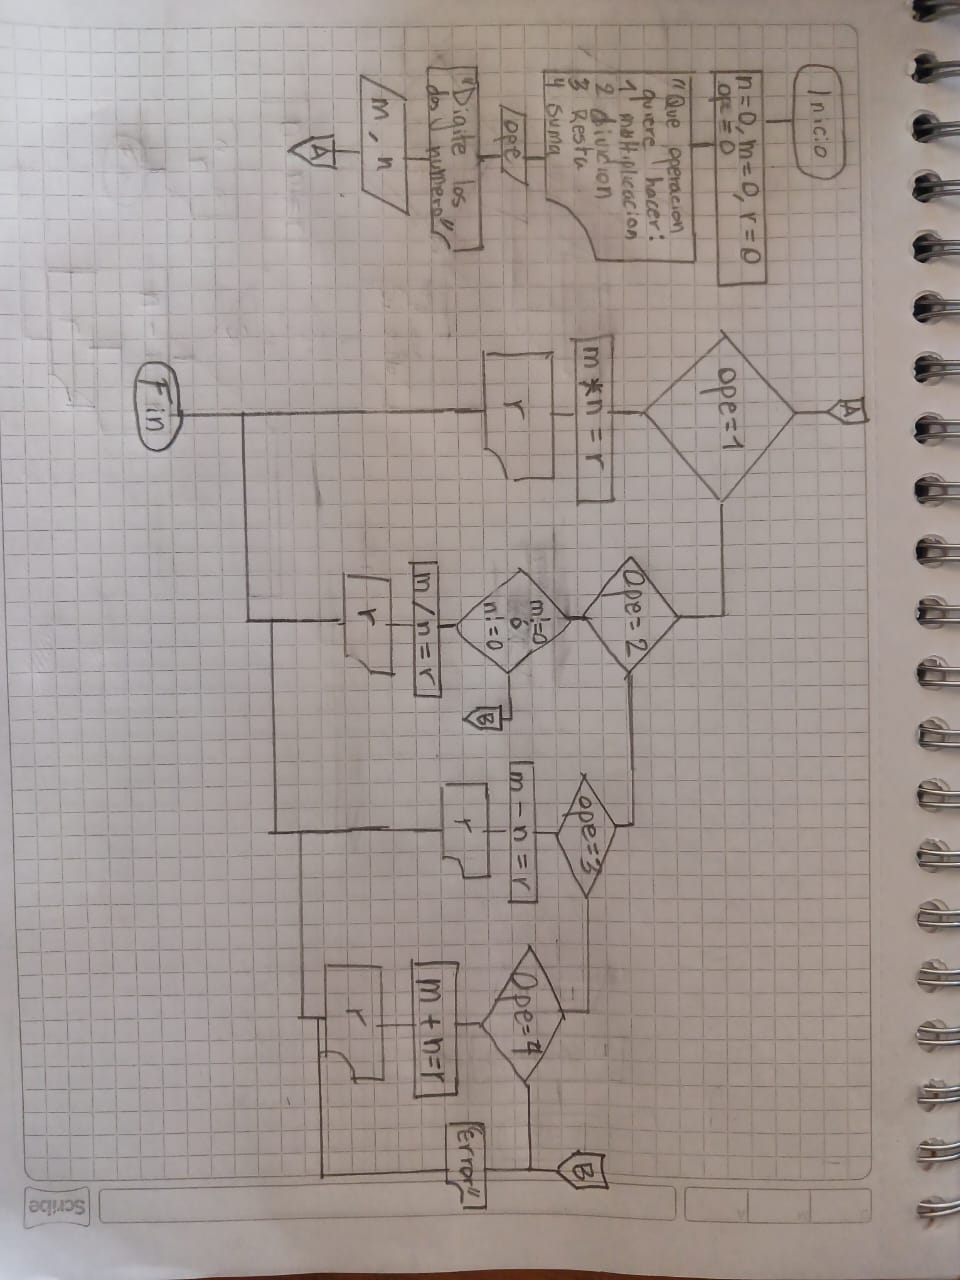 Inicio
n=0, m=0, r=0
ope=0
"Que operacion
quiere hacer:
1 multiplicacion
2 divicion
3 Resta
4 Suma
ope
"Digite los
dos numero"
m, n
A
A
ope=1
m*n=r
r
Ope=2
m!=0
ó
n!=0
B
m/n=r
r
ope=3
m-n=r
r
Ope=4
m+n=r
r
B
"Error"
Fin
Scribe